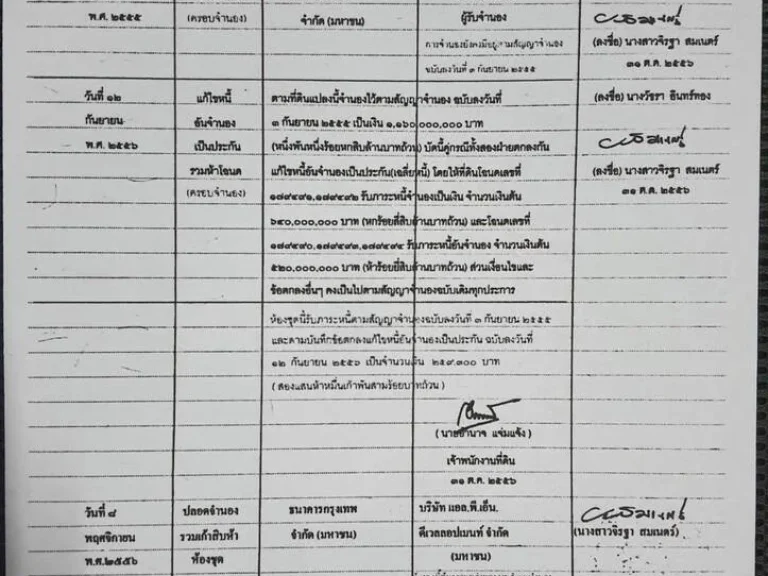 พ.ศ. ๒๕๕๕ (ครอบจำนอง) จำกัด (มหาชน) ผู้รับจำนอง
การจำนองยังคงมีอยู่ตามสัญญาจำนอง (ลงชื่อ) นางสาวจิรฐา สมเนตร์
ฉบับลงวันที่ ๓ กันยายน ๒๕๕๕ ๓๑ ต.ค. ๒๕๕๖
วันที่ ๑๒ แก้ไขหนี้ ตามที่ดินแปลงนี้จำนองไว้ตามสัญญาจำนอง ฉบับลงวันที่ (ลงชื่อ) นางวัชรา อินทร์ทอง
กันยายน อันจำนอง ๓ กันยายน ๒๕๕๕ เป็นเงิน ๑,๑๖๐,๐๐๐,๐๐๐ บาท
พ.ศ. ๒๕๕๖ เป็นประกัน (หนึ่งพันหนึ่งร้อยหกสิบล้านบาทถ้วน) บัดนี้คู่กรณีทั้งสองฝ่ายตกลงกัน
รวมห้าโฉนด แก้ไขหนี้อันจำนองเป็นประกัน(เฉลี่ยหนี้) โดยให้ที่ดินโฉนดเลขที่ (ลงชื่อ) นางสาวจิรฐา สมเนตร์
(ครอบจำนอง) ๑๗๙๔๙๑,๑๗๙๔๙๒ รับภาระหนี้จำนองเป็นเงิน จำนวนเงินต้น ๓๑ ต.ค. ๒๕๕๖
๖๔๐,๐๐๐,๐๐๐ บาท (หกร้อยสี่สิบล้านบาทถ้วน) และโฉนดเลขที่
๑๗๙๔๙๐,๑๗๙๔๙๓,๑๗๙๔๙๔ รับภาระหนี้อันจำนอง จำนวนเงินต้น
๕๒๐,๐๐๐,๐๐๐ บาท (ห้าร้อยยี่สิบล้านบาทถ้วน) ส่วนเงื่อนไขและ
ข้อตกลงอื่นๆ คงเป็นไปตามสัญญาจำนองฉบับเดิมทุกประการ
ห้องชุดนี้รับภาระหนี้ตามสัญญาจำนองฉบับลงวันที่ ๓ กันยายน ๒๕๕๕
และตามบันทึกข้อตกลงแก้ไขหนี้อันจำนองเป็นประกัน ฉบับลงวันที่
๑๒ กันยายน ๒๕๕๖ เป็นจำนวนเงิน ๒๕๙,๓๐๐ บาท
( สองแสนห้าหมื่นเก้าพันสามร้อยบาทถ้วน )
( นายอำนาจ แจ่มแจ้ง )
เจ้าพนักงานที่ดิน
๓๑ ต.ค. ๒๕๕๖
วันที่ ๘ ปลอดจำนอง ธนาคารกรุงเทพ บริษัท แอล.พี.เอ็น.
พฤศจิกายน รวมเก้าสิบห้า จำกัด (มหาชน) ดีเวลลอปเมนท์ จำกัด (นางสาวจิรฐา สมเนตร์)
พ.ศ.๒๕๕๖ ห้องชุด (มหาชน)